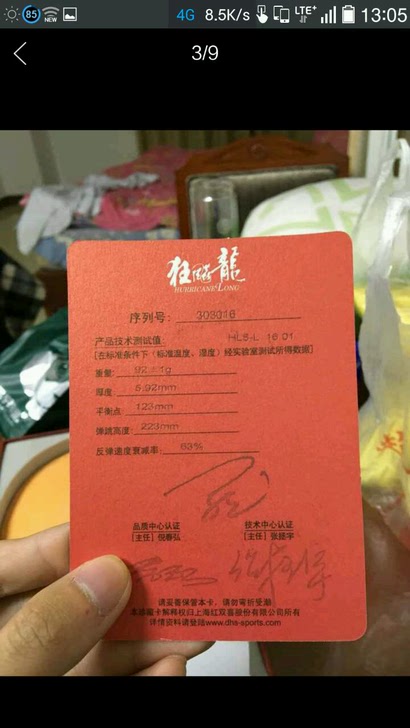 85
NEW
4G 8.5K/s LTE+ 13:05
3/9
狂飚龍
HURRICANE LONG
序列号: 303016
产品技术测试值: HL5-L 16 01
[在标准条件下(标准温度、湿度)经实验室测试所得数据]
重量: 92 ± 1g
厚度: 5.92mm
平衡点: 123mm
弹跳高度: 223mm
反弹速度衰减率: 63%
品质中心认证 技术中心认证
[主任] 倪春弘 [主任]
请妥善保管本卡,请勿弯折受潮
本 卡解释权归上海红双喜股份有限公司所有
详情资料请登陆www.dhs-sports.com